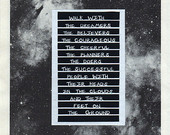 WALK WITH
THE DREAMERS
THE BELIEVERS
THE COURAGEOUS
THE CHEERFUL
THE PLANNERS
THE DOERS
THE SUCCESSFUL
PEOPLE WITH
THEIR HEADS
IN THE CLOUDS
AND THEIR
FEET ON
THE GROUND